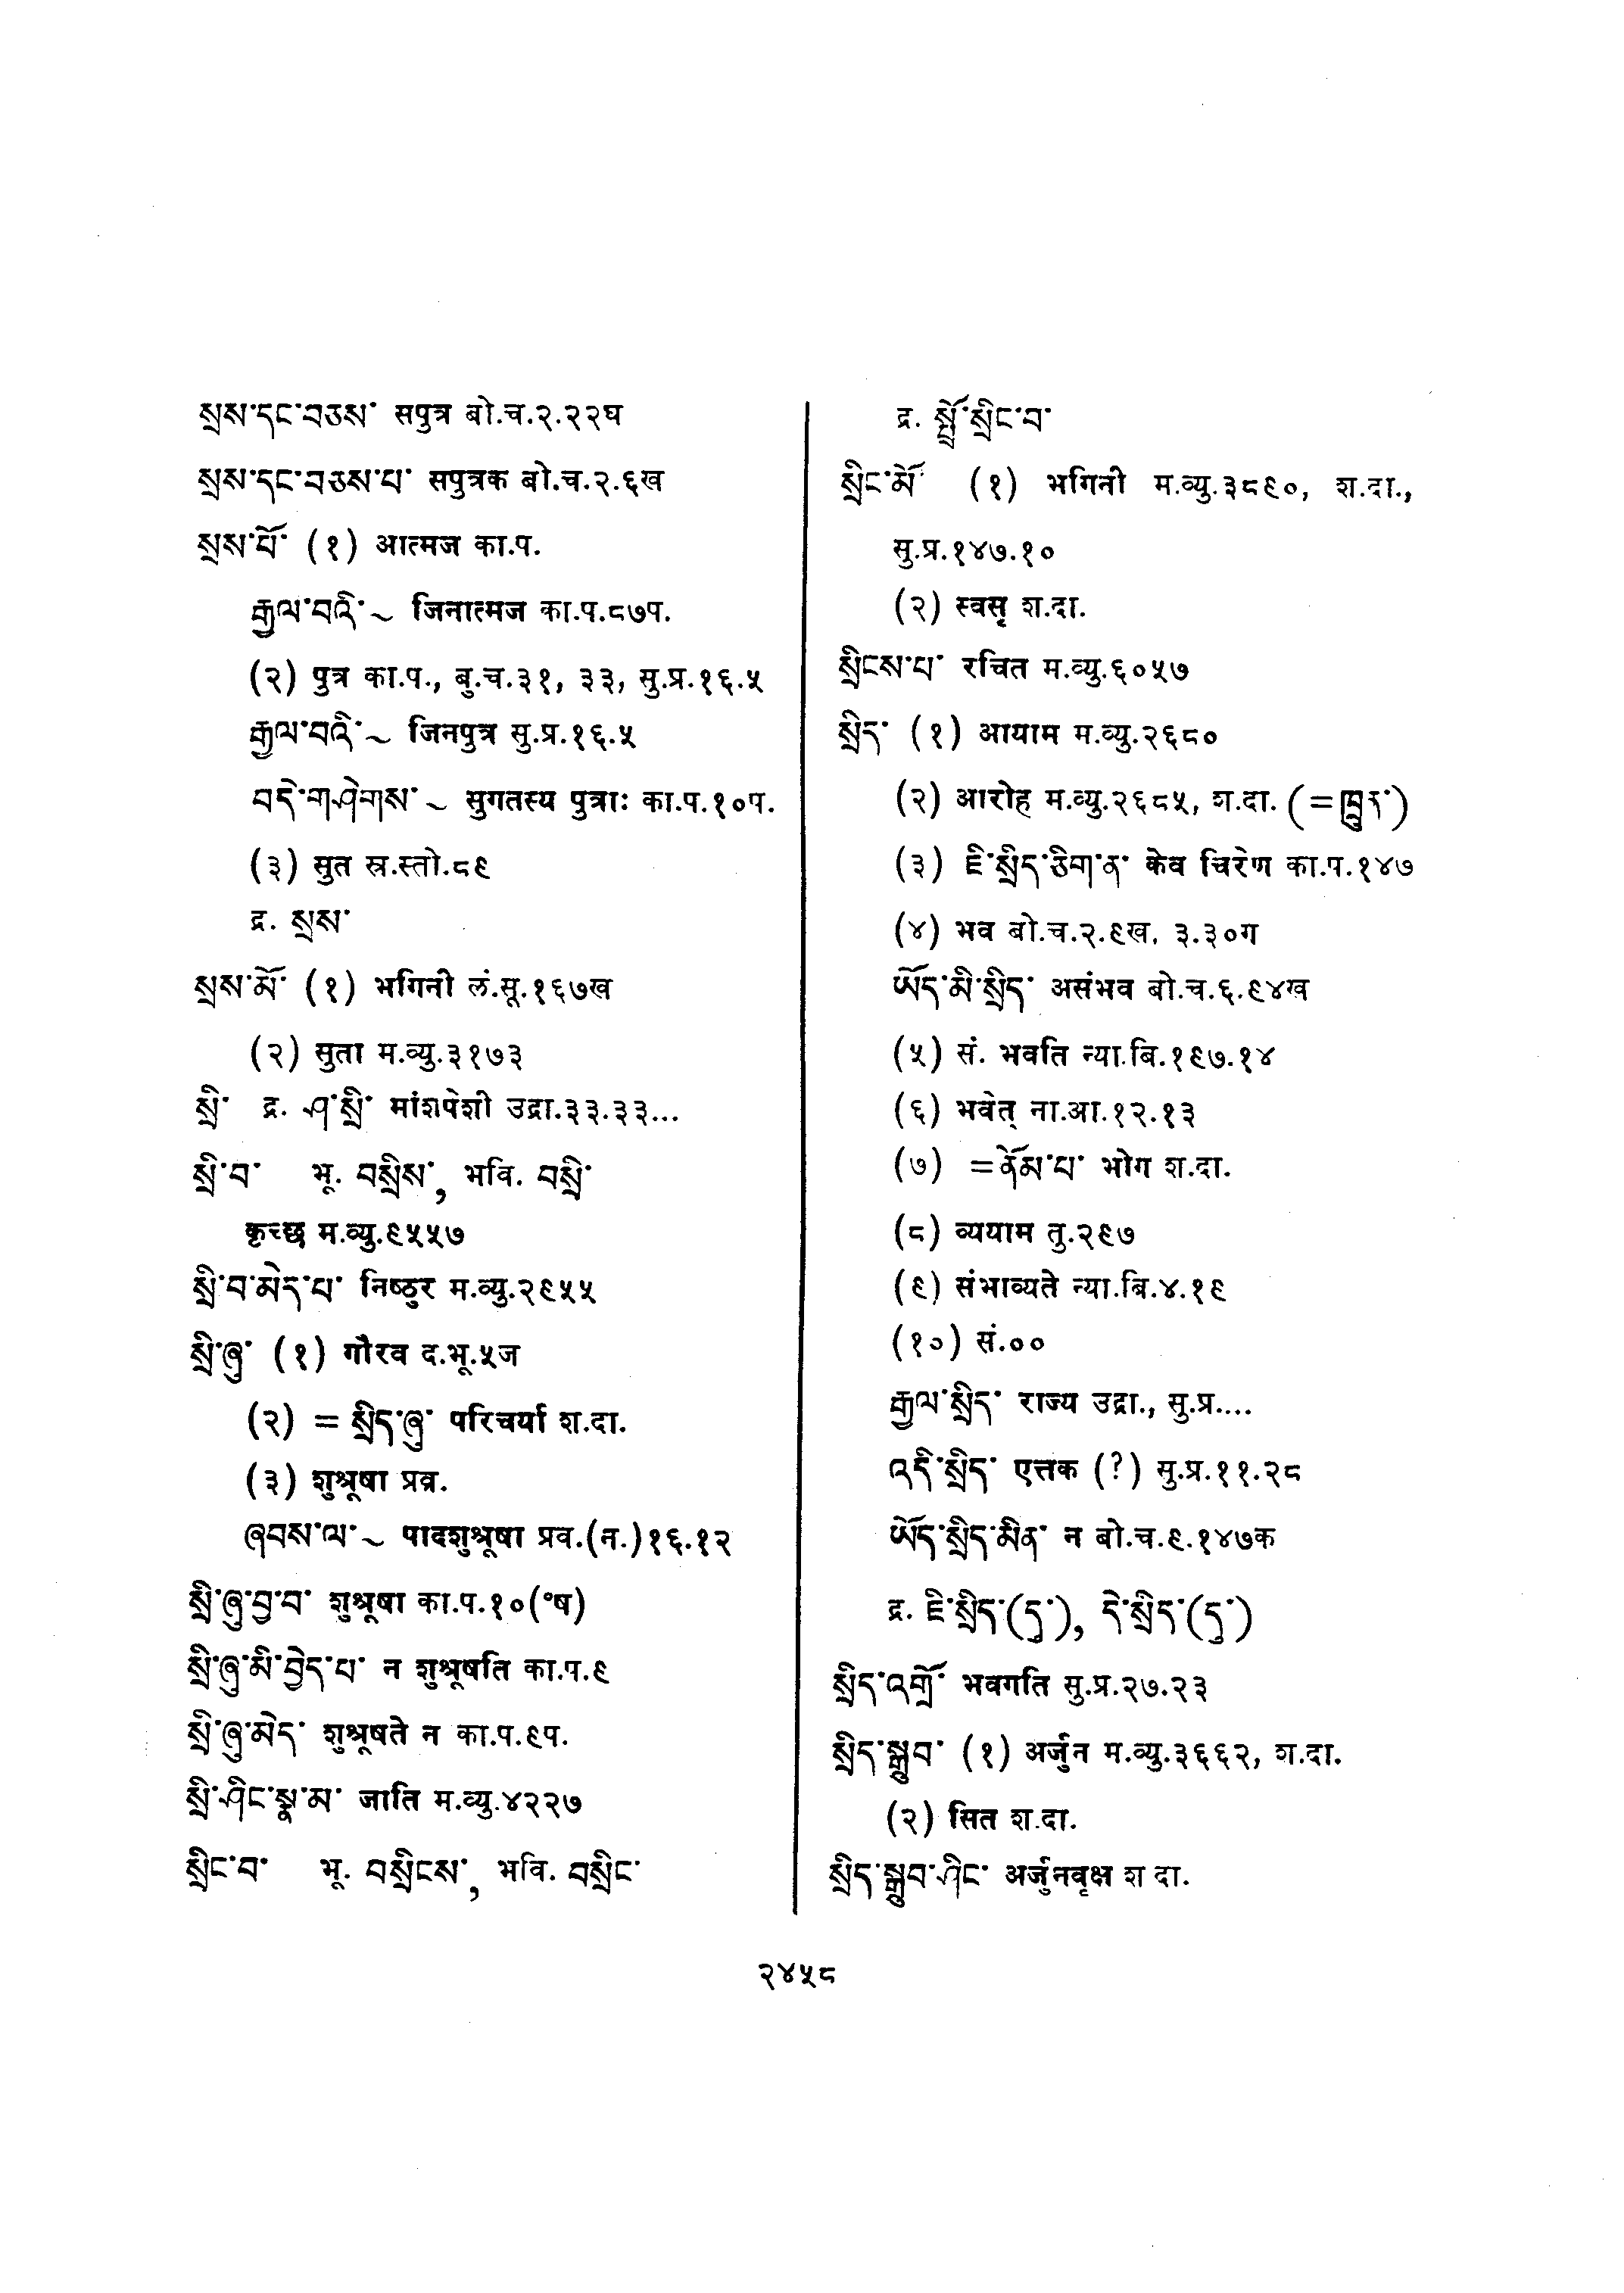 སྲས་དང་བཅས་ सपुत्र बो.च.२.२२घ
སྲས་དང་བཅས་པ་ सपुत्रक बो.च.२.६ख
སྲས་པོ་ (१) आत्मज का.प.
རྒྱལ་བའི་~ जिनात्मज का.प.८७प.
(२) पुत्र का.प., बु.च.३१, ३३, सु.प्र.१६.५
རྒྱལ་བའི་~ जिनपुत्र सु.प्र.१६.५
བདེ་གཤེགས་~ सुगतस्य पुत्राः का.प.१०प.
(३) सुत स्र.स्तो.८९
द्र. སྲས་
སྲས་མོ་ (१) भगिनी लं.सू.१६७ख
(२) सुता म.व्यु.३१७३
སྲི་ द्र. ཤ་སྲི་ मांशपेशी उद्रा.३३.३३...
སྲི་བ་ भू. བསྲིས་, भवि. བསྲི་
कृच्छ म.व्यु.९५५७
སྲི་བ་མེད་པ་ निष्ठुर म.व्यु.२९५५
སྲི་ཞུ་ (१) गौरव द.भू.५ज
(२) = སྲིད་ཞུ་ परिचर्या श.दा.
(३) शुश्रूषा प्रव्र.
ཞབས་ལ་~ पादशुश्रूषा प्रव.(न.)१६.१२
སྲི་ཞུ་བྱ་བ་ शुश्रूषा का.प.१०(°ष)
སྲི་ཞུ་མི་བྱེད་པ་ न शुश्रूषति का.प.९
སྲི་ཞུ་མེད་ शुश्रूषते न का.प.९प.
སྲི་ཤིང་སྣ་མ་ जाति म.व्यु.४२२७
སྲིང་བ་ भू. བསྲིངས་, भवि. བསྲིང་
द्र. སྤྲོ་སྲིང་བ་
སྲིང་མོ་ (१) भगिनी म.व्यु.३८९०, श.दा.,
सु.प्र.१४७.१०
(२) स्वसृ श.दा.
སྲིངས་པ་ रचित म.व्यु.६०५७
སྲིད་ (१) आयाम म.व्यु.२६८०
(२) आरोह म.व्यु.२६८५, श.दा.
(३) ཇི་སྲིད་ཅིག་ན་ केव चिरेण का.प.१४७
(४) भव बो.च.२.९ख, ३.३०ग
ཡོད་མི་སྲིད་ असंभव बो.च.६.९४ख
(५) सं. भवति न्या.बि.१९७.१४
(६) भवेत् ना.आ.१२.१३
(७) =ནོམ་པ་ भोग श.दा.
(८) व्ययाम तु.२९७
(९) संभाव्यते न्या.बि.४.१९
(१०) सं.००
རྒྱལ་སྲིད་ राज्य उद्रा., सु.प्र....
འདི་སྲིད་ एत्तक (?) सु.प्र.११.२८
ཡོད་སྲིད་མིན་ न बो.च.९.१४७क
द्र. ཇི་སྲིད་(དུ་), དེ་སྲིད་(དུ་)
སྲིད་འགྲོ་ भवगति सु.प्र.२७.२३
སྲིད་སྒྲུབ་ (१) अर्जुन म.व्यु.३६६२, श.दा.
(२) सित श.दा.
སྲིད་སྒྲུབ་ཤིང་ अर्जुनवृक्ष श दा.
२४५८